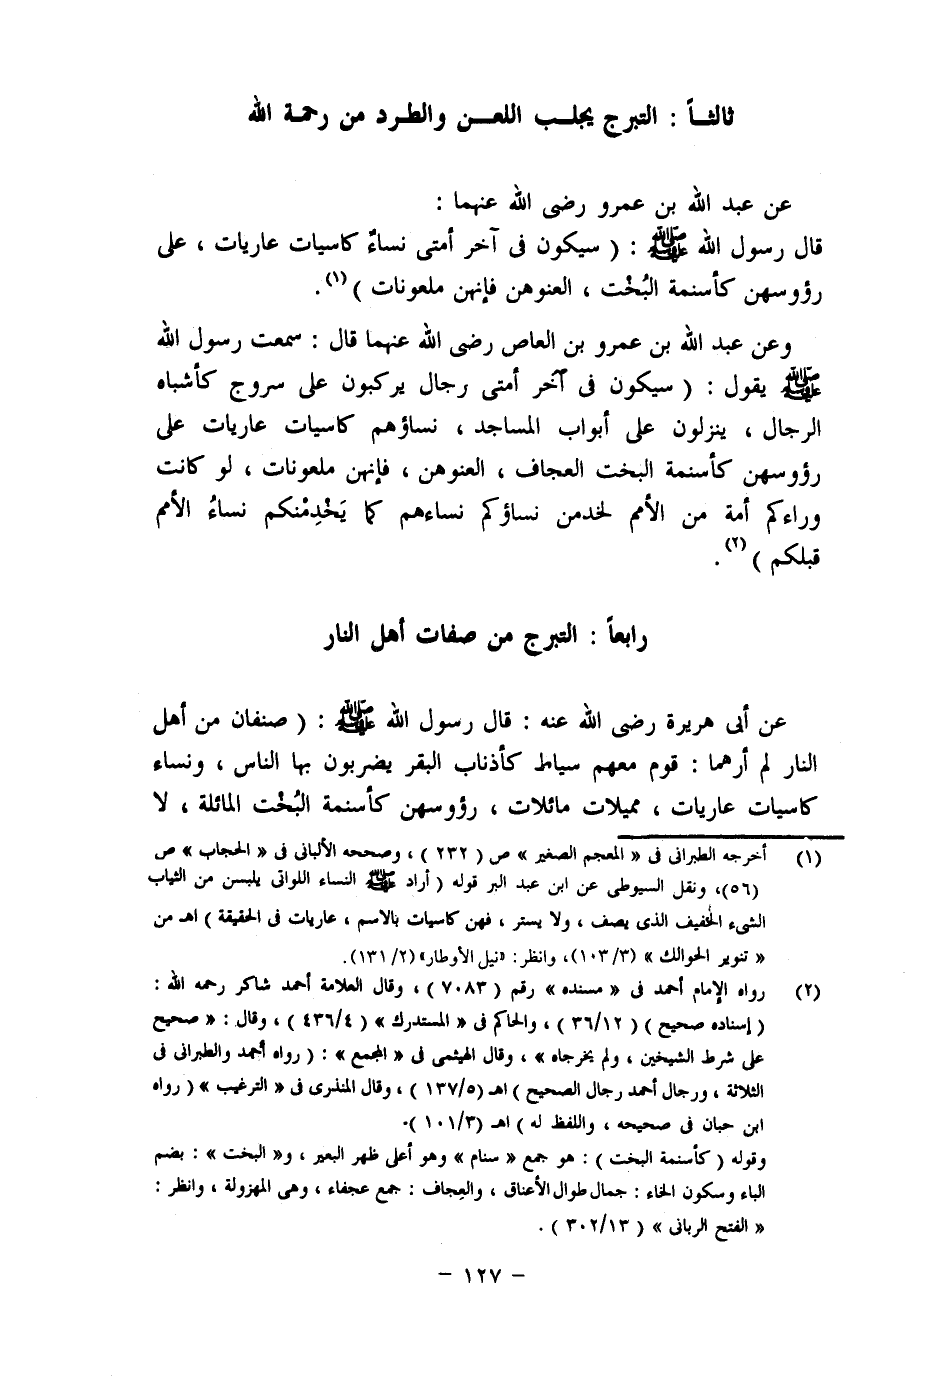 ثالثـاً : التبرج يجلـب اللعـن والطـرد من رحمـة الله
عن عبد الله بن عمرو رضى الله عنهما :
قال رسول الله ﷺ : ( سيكون فى آخر أمتى نساءٌ كاسيات عاريات ، على
رؤوسهن كأسنمة البُخْت ، العنوهن فإنهن ملعونات )(١).
وعن عبد الله بن عمرو بن العاص رضى الله عنهما قال : سمعت رسول الله
ﷺ يقول : ( سيكون فى آخر أمتى رجال يركبون على سروج كأشباه
الرجال ، ينزلون على أبواب المساجد ، نساؤهم كاسيات عاريات على
رؤوسهن كأسنمة البخت العجاف ، العنوهن ، فإنهن ملعونات ، لو كانت
وراءكم أمة من الأمم لخدمن نساؤكم نساءهم كما يَخْدِمْنكم نساءُ الأمم
قبلكم )(٢).
رابعاً : التبرج من صفات أهل النار
عن أبى هريرة رضى الله عنه : قال رسول الله ﷺ : ( صنفان من أهل
النار لم أرهما : قوم معهم سياط كأذناب البقر يضربون بها الناس ، ونساء
كاسيات عاريات ، مميلات مائلات ، رؤوسهن كأسنمة البُخْت المائلة ، لا
(١) أخرجه الطبرانى فى « المعجم الصغير » ص ( ٢٣٢ ) ، وصححه الألبانى فى « الحجاب » ص
(٥٦)، ونقل السيوطى عن ابن عبد البر قوله ( أراد ﷺ النساء اللواتى يلبسن من الثياب
الشىء الخفيف الذى يصف ، ولا يستر ، فهن كاسيات بالاسم ، عاريات فى الحقيقة ) اهـ من
« تنوير الحوالك » (١٠٣/٣)، وانظر: «نيل الأوطار» (١٣١/٢).
(٢) رواه الإمام أحمد فى « مسنده » رقم ( ٧٠٨٣ ) ، وقال العلامة أحمد شاكر رحمه الله :
( إسناده صحيح ) ( ٣٦/١٢ ) ، والحاكم فى « المستدرك » ( ٤٣٦/٤ ) ، وقال : « صحيح
على شرط الشيخين ، ولم يخرجاه » ، وقال الهيثمى فى « المجمع » : ( رواه أحمد والطبرانى فى
الثلاثة ، ورجال أحمد رجال الصحيح ) اهـ (١٣٧/٥ ) ، وقال المنذرى فى « الترغيب » ( رواه
ابن حبان فى صحيحه ، واللفظ له ) اهـ (١٠١/٣ ).
وقوله ( كأسنمة البخت ) : هو جمع « سنام » وهو أعلى ظهر البعير ، و« البخت » : بضم
الباء وسكون الخاء : جمال طوال الأعناق ، والعِجاف : جمع عجفاء ، وهى المهزولة ، وانظر :
« الفتح الربانى » ( ٣٠٢/١٣ ) .
– ١٢٧ –